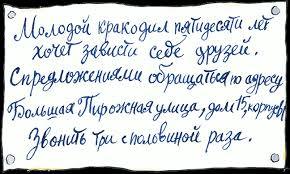 Молодой кракодил пятидесяти лет
хочет завести себе друзей.
С предложениями обращаться по адресу
Большая Пирожная улица, дом 15, корпус
Звонить три с половиной раза.